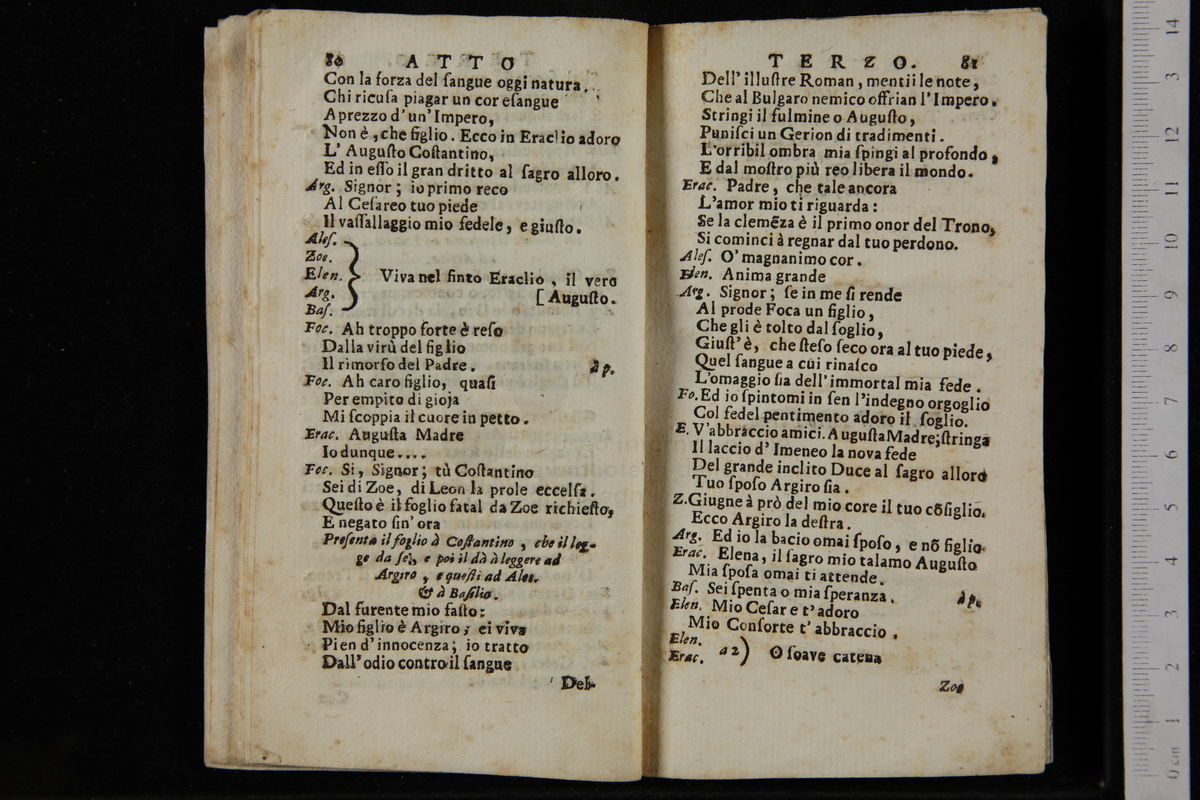 80 ATTO
Con la forza del ſangue oggi natura.
Chi ricuſa piagar un cor eſangue
A prezzo d'un'Impero,
Non è, che figlio. Ecco in Eraclio adoro
L' Auguſto Coſtantino,
Ed in eſſo il gran dritto al ſagro alloro.
Arg. Signor; io primo reco
Al Ceſareo tuo piede
Il vaſſallaggio mio fedele, e giuſto.
Aleſ.
Zoe.
Elen. } Viva nel finto Eraclio, il vero
Arg. [Auguſto.
Baſ.
Foc. Ah troppo forte è reſo
Dalla virù del figlio
Il rimorſo del Padre. à p.
Foc. Ah caro figlio, quaſi
Per empito di gioja
Mi ſcoppia il cuore in petto.
Erac. Auguſta Madre
Io dunque....
Foc. Si, Signor; tù Coſtantino
Sei di Zoe, di Leon la prole eccelſa.
Queſto è il foglio fatal da Zoe richieſto,
E negato ſin' ora
Preſenta il foglio à Coſtantino, che il leg-
ge da ſe, e poi il dà à leggere ad
Argiro, e queſti ad Aleſ.
& à Baſilio.
Dal furente mio faſto:
Mio figlio è Argiro; ei viva
Pien d'innocenza; io tratto
Dall'odio contro il ſangue
Del-
TERZO. 81
Dell' illuſtre Roman, mentii le note,
Che al Bulgaro nemico offrian l'Impero.
Stringi il fulmine o Auguſto,
Puniſci un Gerion di tradimenti.
L'orribil ombra mia ſpingi al profondo,
E dal moſtro più reo libera il mondo.
Erac. Padre, che tale ancora
L'amor mio ti riguarda:
Se la clemẽza è il primo onor del Trono,
Si cominci à regnar dal tuo perdono.
Aleſ. O' magnanimo cor.
Elen. Anima grande
Arg. Signor; ſe in me ſi rende
Al prode Foca un figlio,
Che gli è tolto dal ſoglio,
Giuſt'è, che ſteſo ſeco ora al tuo piede,
Quel ſangue a cui rinaſco
L'omaggio ſia dell'immortal mia fede.
Fo. Ed io ſpintomi in ſen l'indegno orgoglio
Col fedel pentimento adoro il ſoglio.
E. V'abbraccio amici. Auguſta Madre; ſtringa
Il laccio d' Imeneo la nova fede
Del grande inclito Duce al ſagro alloro
Tuo ſpoſo Argiro ſia.
Z. Giugne à prò del mio core il tuo cõſiglio.
Ecco Argiro la deſtra.
Arg. Ed io la bacio omai ſpoſo, e nõ figlio.
Erac. Elena, il ſagro mio talamo Auguſto
Mia ſpoſa omai ti attende.
Baſ. Sei ſpenta o mia ſperanza. à p.
Elen. Mio Ceſar e t'adoro
Mio Conſorte t'abbraccio.
Elen.
Erac. a 2) O ſoave catena
Zoe